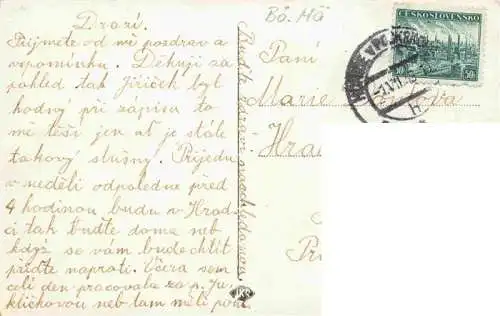 Drazí.
Přijmete od mě pozdrav a
vzpomínku. Děkuji za
pohled tak Jiříček byl
hodný při zápisu to
mě těší jen ať je stále
takový slušný. Přijedu
v neděli odpoledne před
4 hodinou budu v Hrad-
ci tak buďte doma neb
když se vám bude chtít
přiďte naproti. Včera sem
celí den pracovala za p. Ju
kličkovou neb tam měli pohř
Buďte zdraví
Bó. Há
Paní
Marie
va
Hrad
Pr
ČESKOSLOVENSKO
50 50